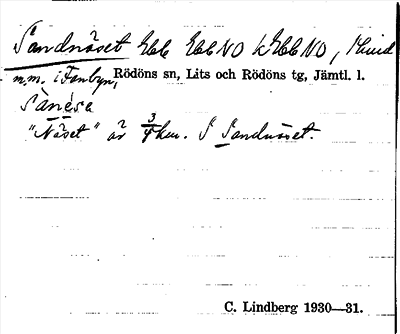 Sandnäset Ebb EbbNO kEbbNO,
m.m. i Fanbyn, Rödöns sn, Lits och Rödöns tg, Jämtl. l.
Sànésa
"Näset" är 3/4 km. S Sandnäset.
C. Lindberg 1930—31.